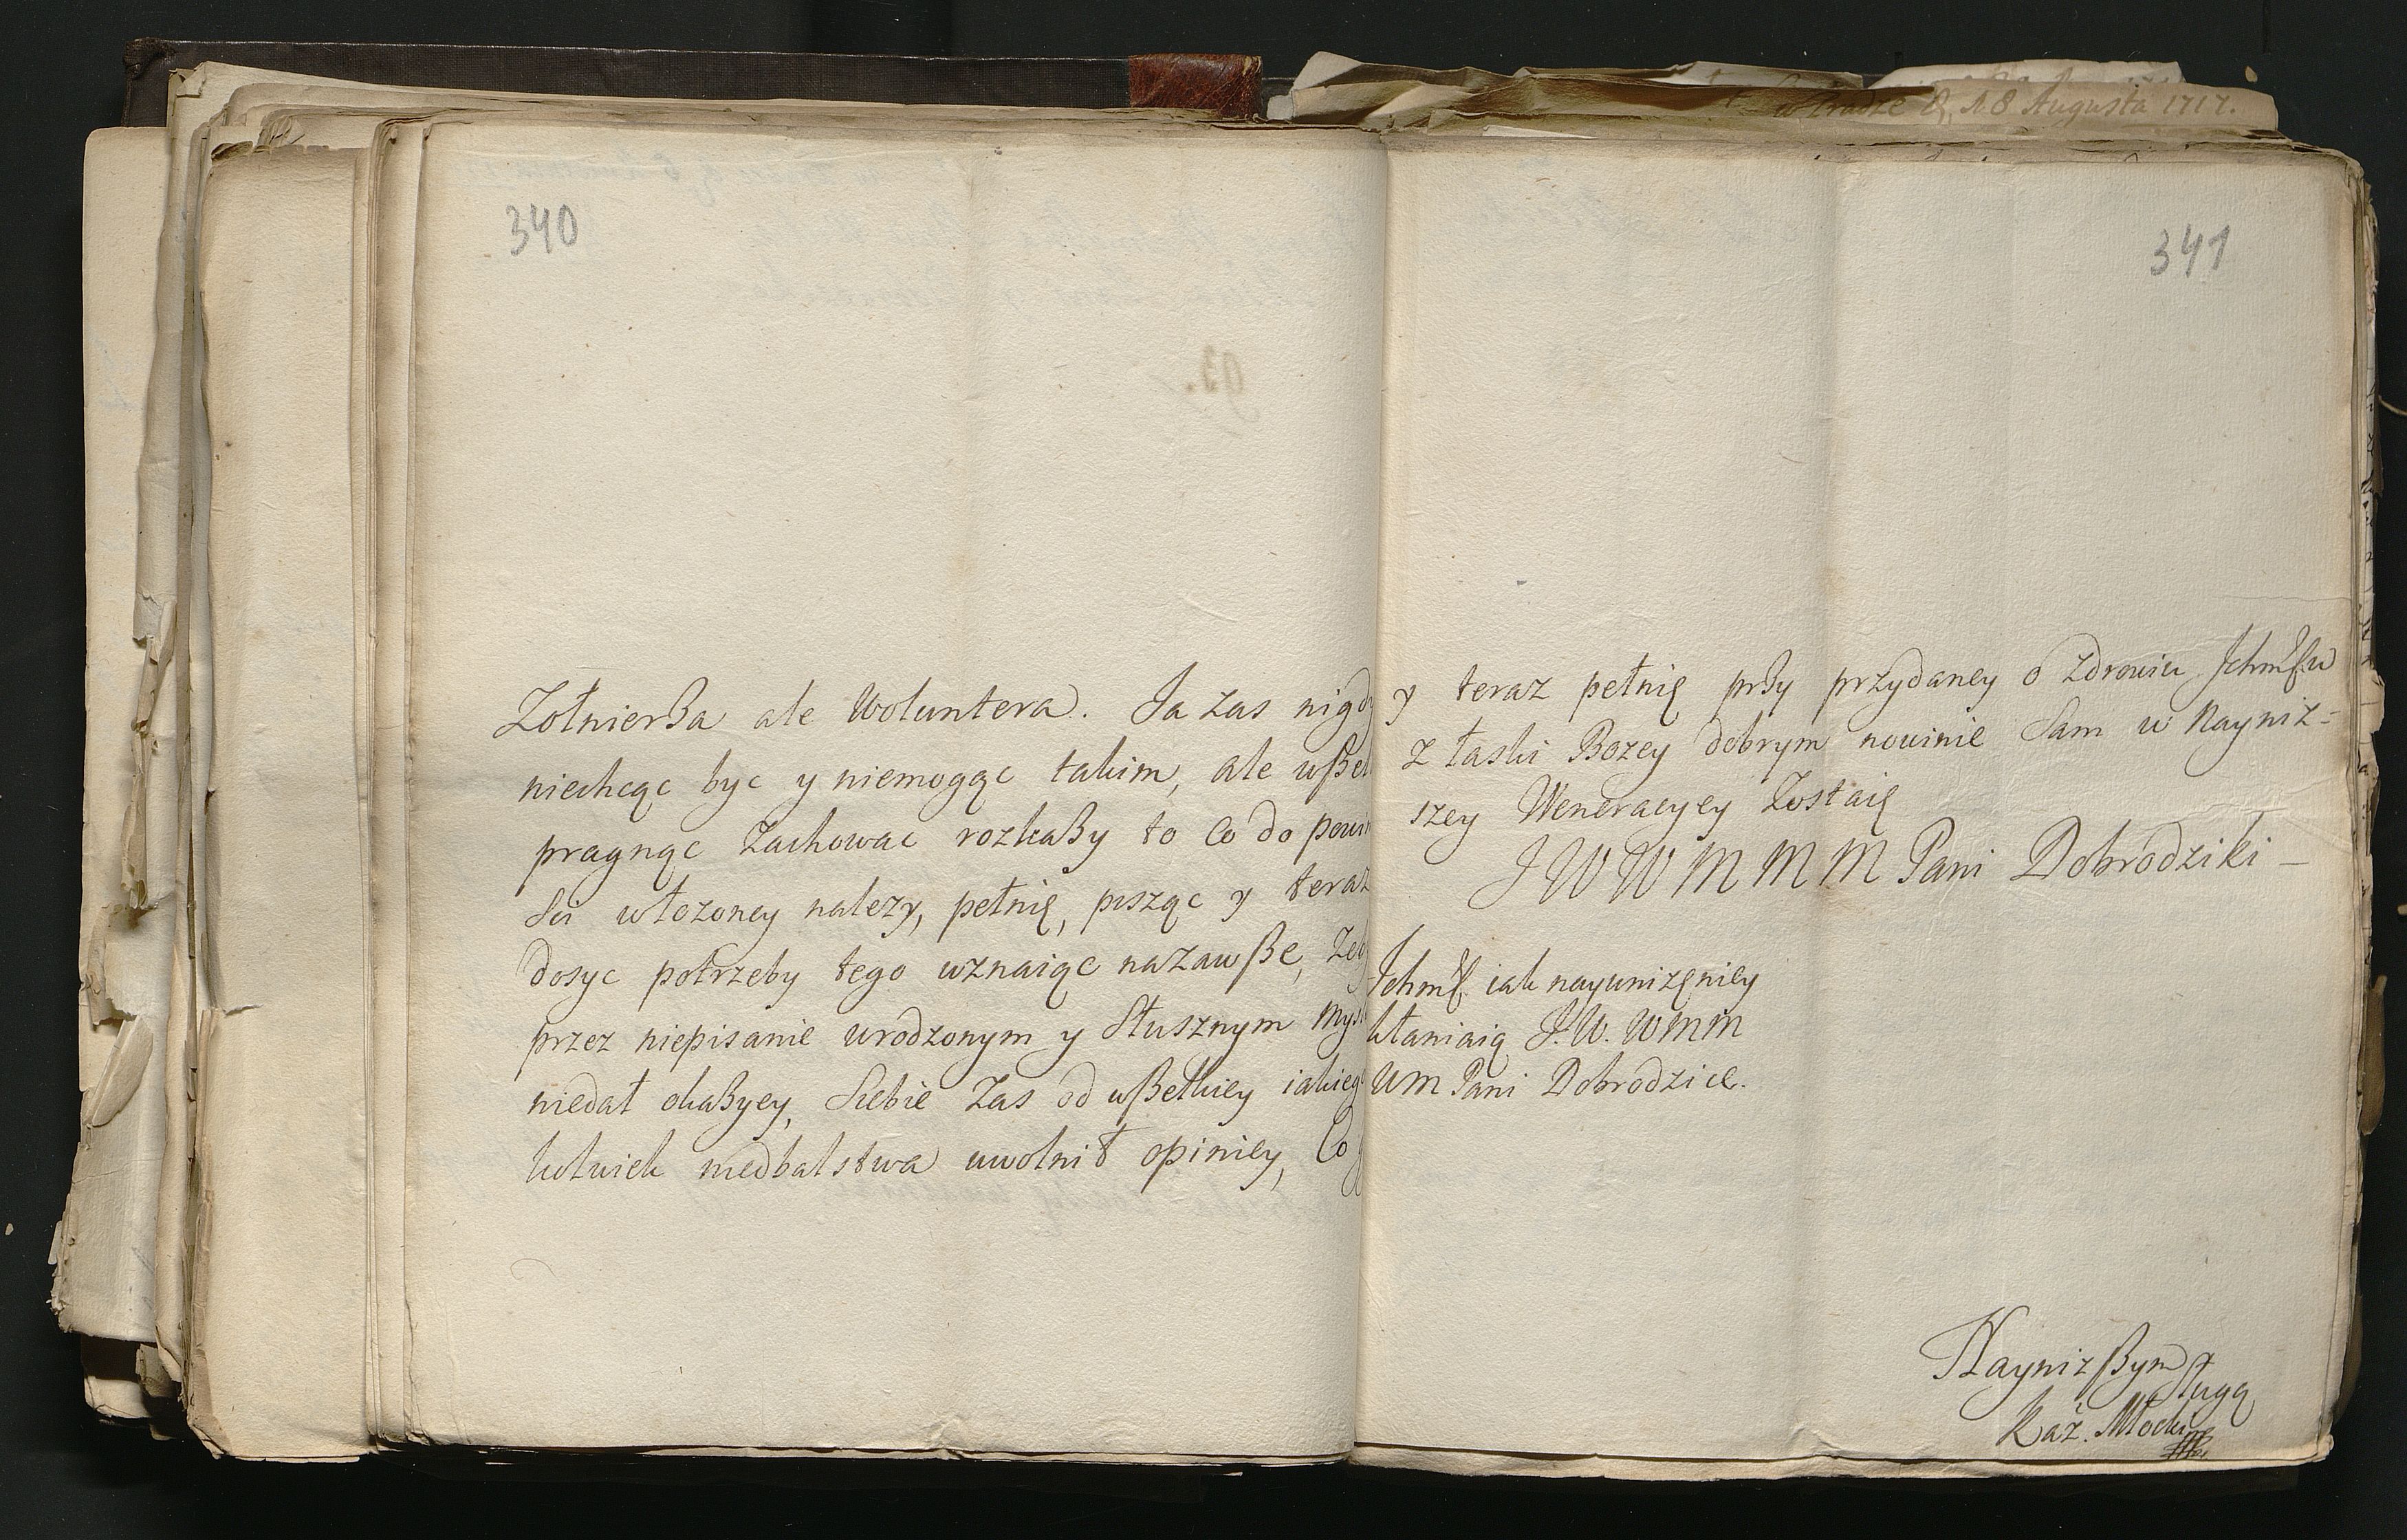 340
Zołnierßa ale Woluntera. Ja zas nigdy
niechcąc byc y niemogąc takim, ale wßel
pragnąc Zachowac rozkaßy to Co do powin
Sci włozoney nalezy, pełnię, pisząc y teraz
dosyc potrzeby tego uznaiąc nazawße,
przez niepisanie urodzonym y Słusznym
niedał okaßyey, Siebie Zas od wßelkiey iakieg
kolwiek niedbalstwa uwolnił opiniey, Co
Augusta 1717.
341
y teraz pełnię przy przydaney o zdrowiu Jchmś.w
z łaski Bozey dobrym nowinie Sam w Nayniz=
szey Weneracyey Zostaię
J W W M M M Pani Dobrodziki –
Jchmś. iak nayunizęniey
kłaniaią J. W. W M M
W M Pani Dobrodzice.
Nayniz ßym Sługą
Każ. Młocki